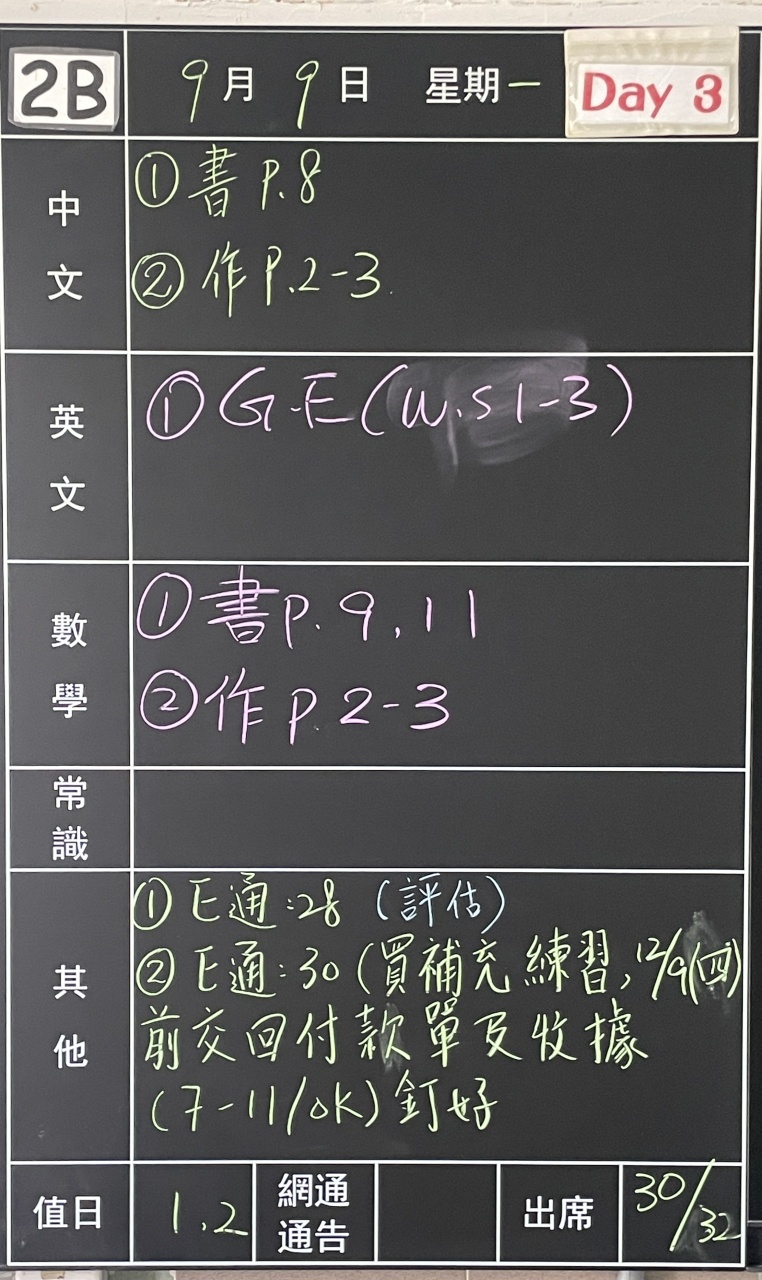 2B 9月9日 星期一 Day 3
中文
①書P.8
②作P.2-3
英文
①G.E(W.S1-3)
數學
①書P.9,11
②作P.2-3
常識
其他
①E通:28(評估)
②E通:30(買補充練習,12/9(四)
前交回付款單及收據
(7-11/OK)釘好
值日 1.2 網通通告 出席 30/32